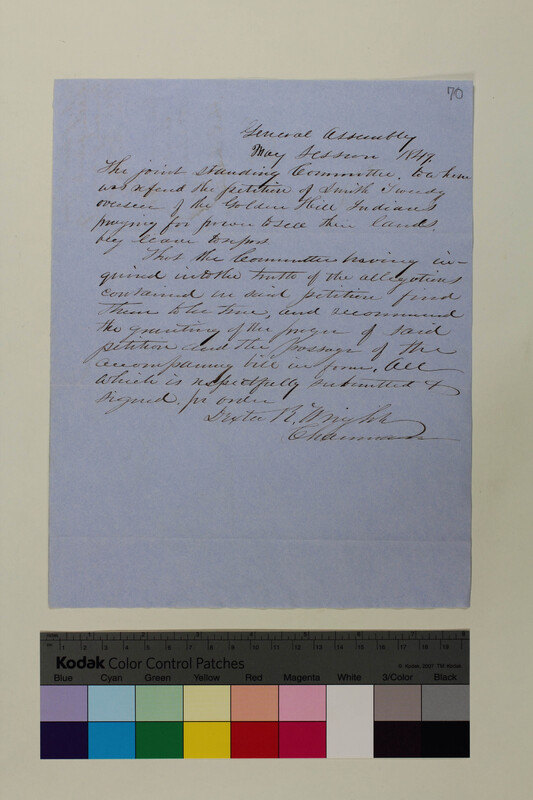 70
General Assembly
May Session 1849.
The joint standing Committee, to whom
was referd the petition of Smith Tweedy
overseer of the Golden Hill Indians
praying for power to sell their land,
beg leave to report
That the Committee having in-
quired into the truth of the allegations
contained in said petition find
them to be true, and recommend
the granting of the prayer of said
petition and the passage of the
accompanying bill in form. All
which is respectfully submitted &
signed, pr order
Dexter R. Wright
Chairman
inches 1 2 3 4 5 6 7 8
cm 1 2 3 4 5 6 7 8 9 10 11 12 13 14 15 16 17 18 19
Kodak Color Control Patches
© Kodak, 2007 TM: Kodak
Blue Cyan Green Yellow Red Magenta White 3/Color Black